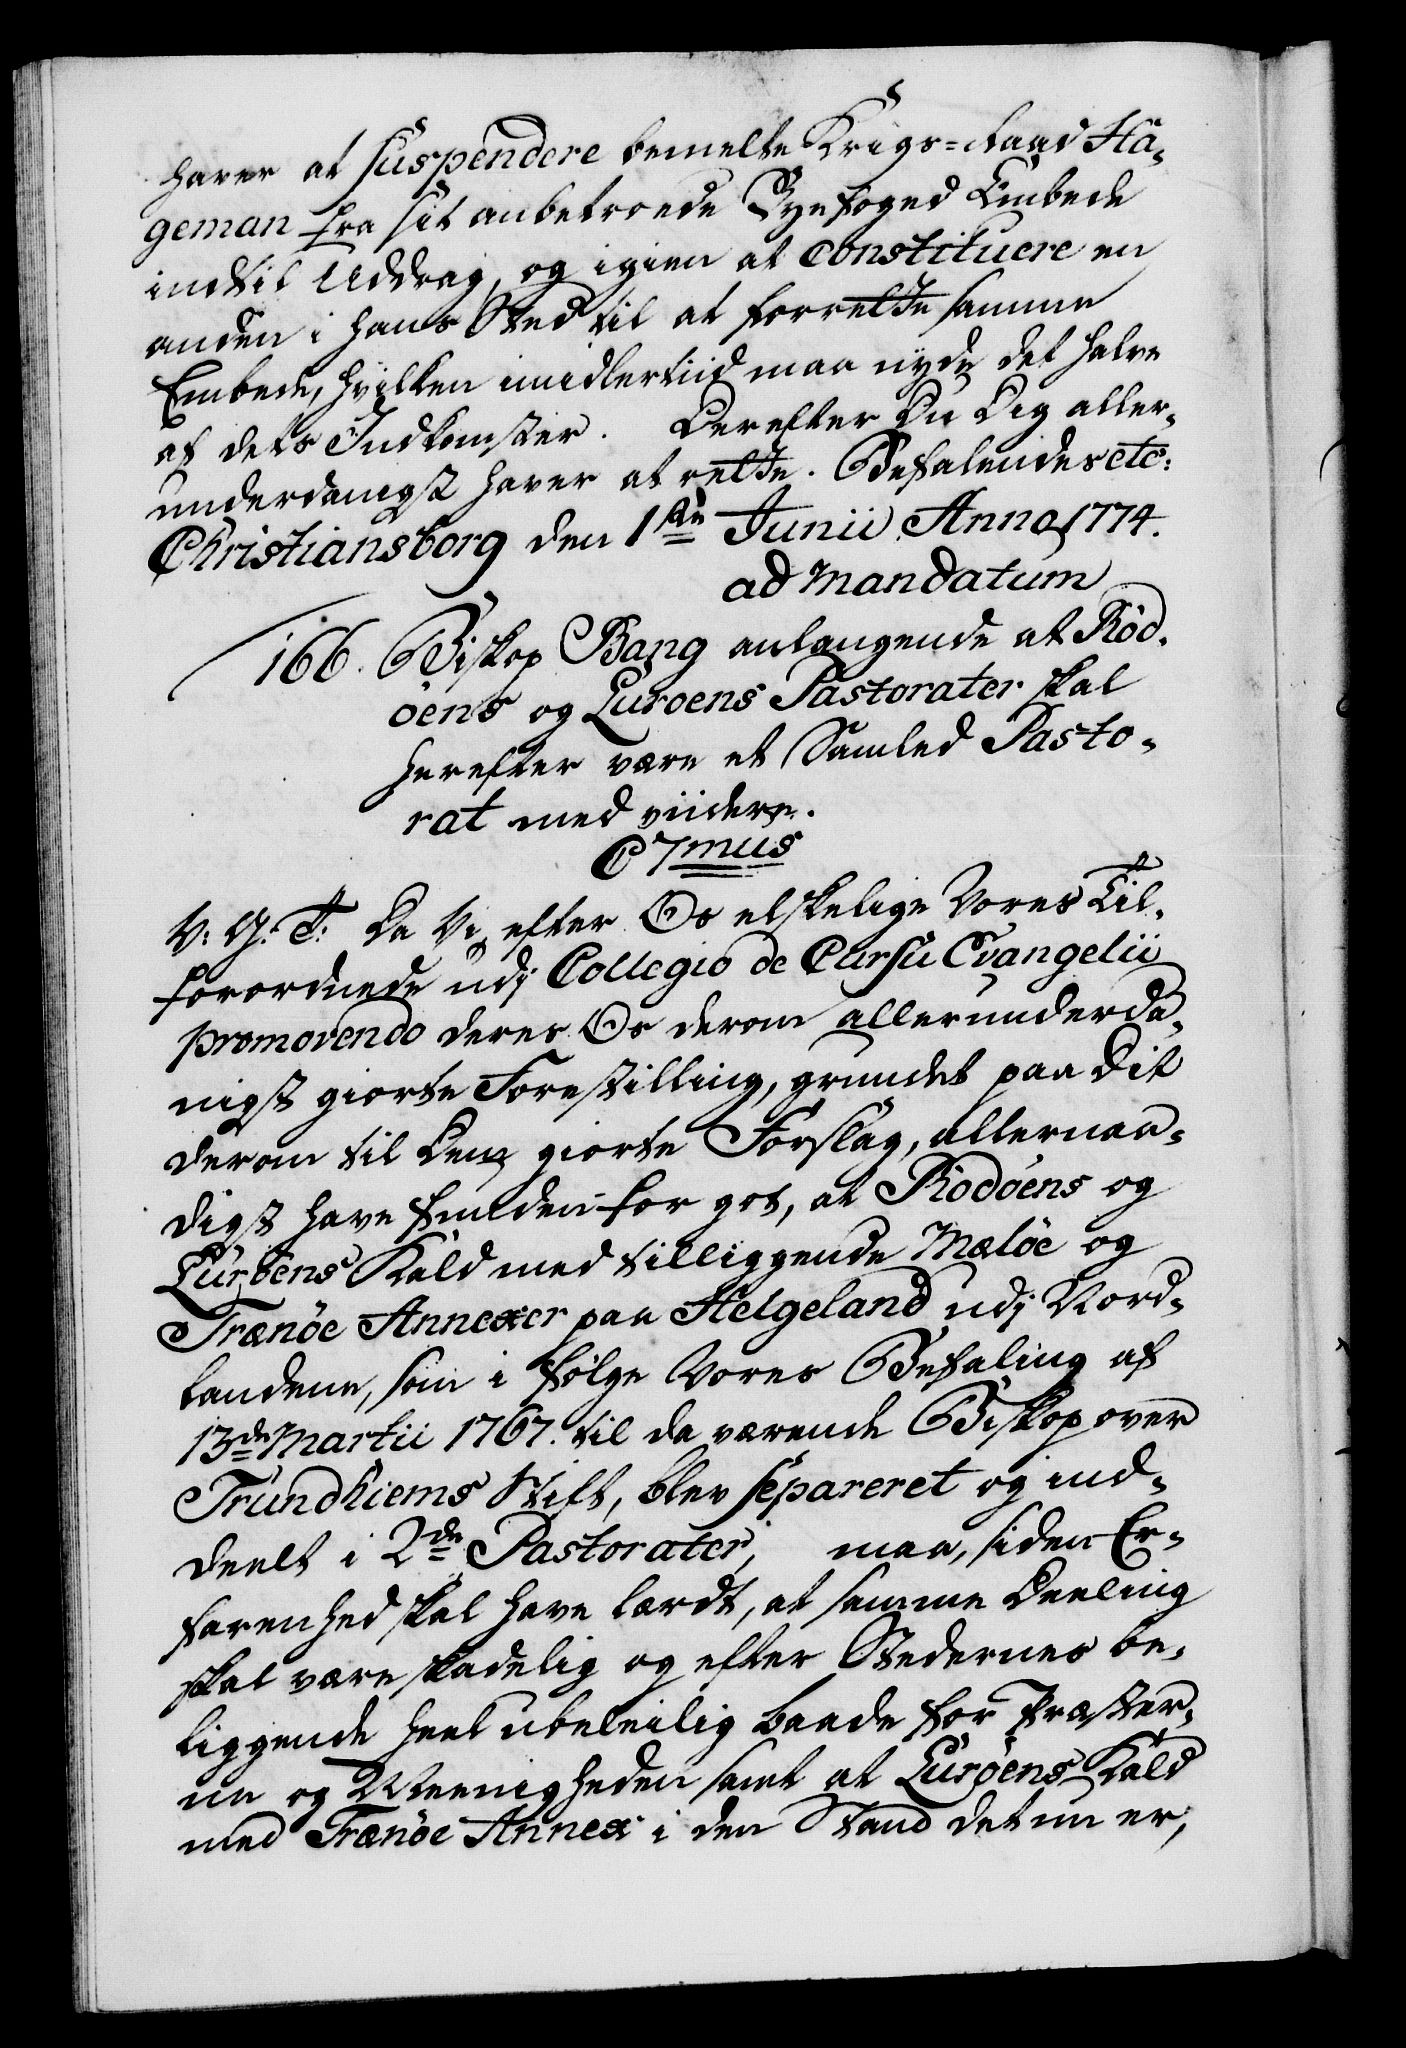 haver at suspendere bemelte Krigs=Raad Ha-
geman fra sit anbetroede Byefoged Embede
indtil Uddrag, og igien at constituere en
anden i hans Sted til at forrette samme
Embede, hvilken imidlertiid maa nyde det halve
af dets Indkomster. Derefter Du Dig aller-
underdanigst haver at rette. Befalendes etc:
Christiansborg den 1ste Junii Anno 1774.
ad Mandatum
166. Biskop Bang anlangende at Röd-
öens og Luröens Pastorater skal
herefter være et Samled Pasto-
rat med viidere.
C 7mus
V: G: T: Da Vi efter Os elskelige Vores Til-
forordnede udj Collegio de Cursu Evangelii
promovendo deres Os derom allerunderda-
nigst giorte Forestilling, grundet paa Dit
derom til Dem giorte Forslag, allernaa-
digst have funden for got, at Rödöens og
Luröens Kald med tilliggende Mælöe og
Trænöe Annexer paa Helgeland udj Nord-
landene, som i følge Vores Befaling af
13de Martii 1767. til da værende Biskop over
Trundhiems Stift, blev separeret og ind-
deelt i 2de Pastorater, maa, siden Er-
farenhed skal have lærdt, at samme Deeling
skal være skadelig og efter Stedernes be-
liggende heel ubeleilig baade for Præster-
ne og Meenigheden samt at Luröens Kald
med Trænöe Annex i den Stand det nu er,